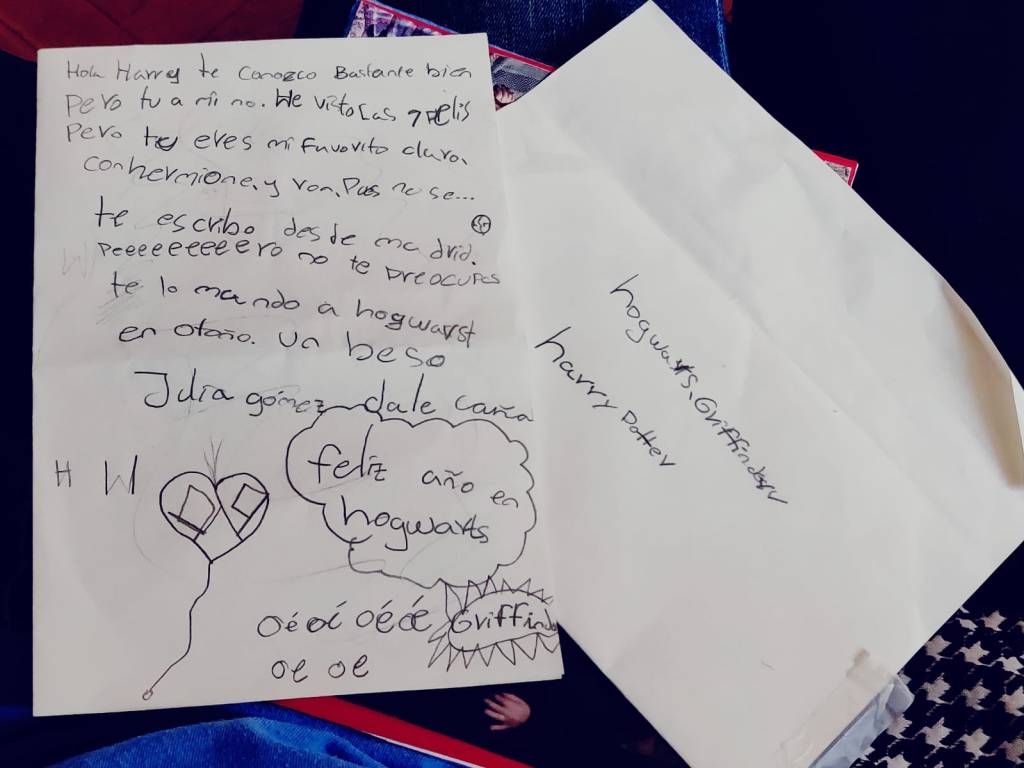 Hola Harry te Conozco Bastante bien
pero tu a mi no. He visto las 7 pelis
pero tu eres mi favorito claro.
con hermione. y ron. Pues no se...
te escribo desde madrid.
Peeeeeeeeero no te preocupes
te lo mando a hogwarst
en otoño. Un beso
Julia gómez dale caña
H W
feliz año en
hogwarts
oé oé oé é
Griffindo
oe oe
hogwarts, Griffindor
harry Potter